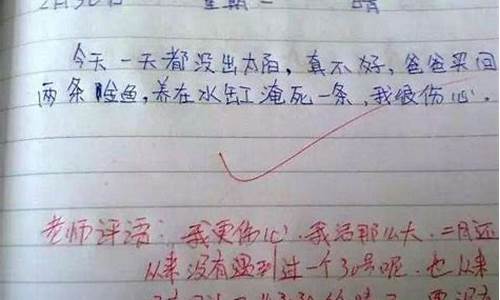 2月30日 星期一 晴
今天一天都没出太阳，真不好，爸爸买回
两条金鱼，养在水缸淹死一条，我很伤心.
老师评语：我更伤心.我活那么大.二月还
从来没有遇到过一个30号呢.也从来